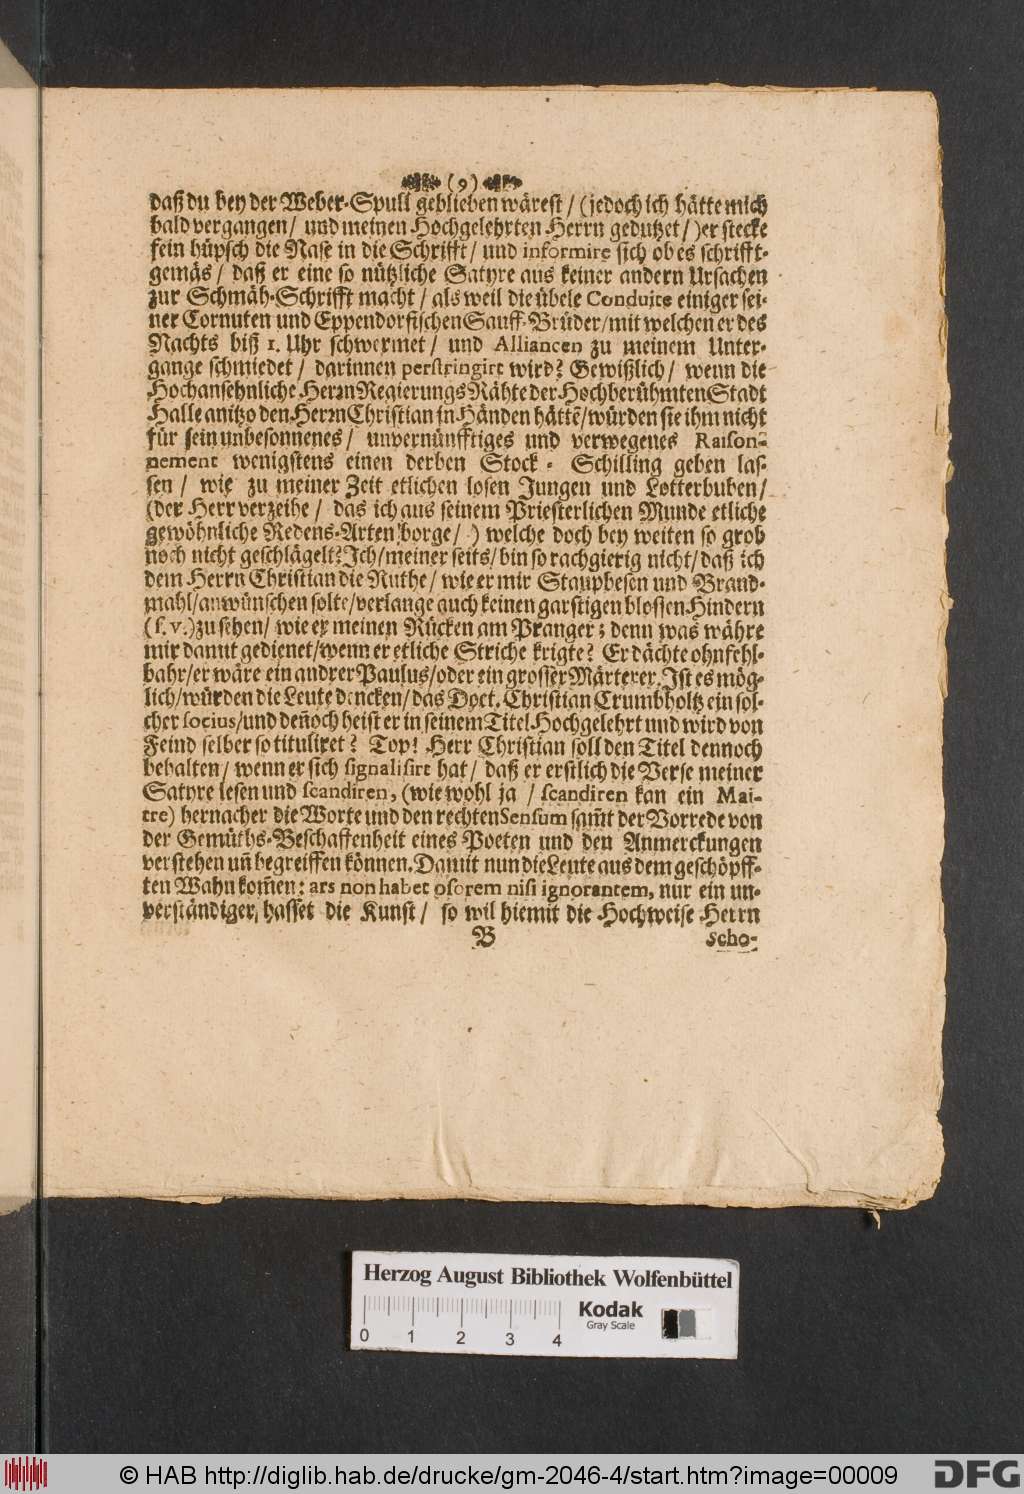 (9)
daß du bey der Weber-Spull geblieben wärest / (jedoch ich hätte mich
bald vergangen / und meinen Hochgelehrten Herrn gedutzet / ) er stecke
fein hüpsch die Nase in die Schrifft / und informire sich ob es schrifft-
gemäs / daß er eine so nützliche Satyre aus keiner andern Ursachen
zur Schmäh-Schrifft macht / als weil die übele Conduite einiger sei-
ner Cornuten und Eppendorfischen Sauff-Brüder / mit welchen er des
Nachts biß 1. Uhr schwermet / und Alliancen zu meinem Unter-
gange schmiedet / darinnen perstringirt wird? Gewißlich / wenn die
Hochansehnliche Herrn Regierungs Rähte der Hochberühmten Stadt
Halle anitzo den Herrn Christian in Händen hättē / würden sie ihm nicht
für sein unbesonnenes / unvernünfftiges und verwegenes Raison-
nement wenigstens einen derben Stock-Schilling geben las-
sen / wie zu meiner Zeit etlichen losen Jungen und Lotterbuben /
(der Herr verzeihe / das ich aus seinem Priesterlichen Munde etliche
gewöhnliche Redens-Arten borge / ) welche doch bey weiten so grob
noch nicht geschlägelt? Ich / meiner seits / bin so rachgierig nicht / daß ich
dem Herrn Christian die Ruthe / wie er mir Staupbesen und Brand-
mahl / anwünschen solte / verlange auch keinen garstigen blossen Hindern
(s. v.) zu sehen / wie er meinen Rücken am Pranger; denn was währe
mir damit gedienet / wenn er etliche Striche krigte? Er dächte ohnfehl-
bahr / er wäre ein andrer Paulus / oder ein grosser Märterer. Ist es mög-
lich / würden die Leute dencken / das Doct. Christian Crumbholtz ein sol-
cher socius / und deñoch heist er in seinem Titel Hochgelehrt und wird von
Feind selber so tituliret? Top! Herr Christian soll den Titel dennoch
behalten / wenn er sich signalisirt hat / daß er erstlich die Verse meiner
Satyre lesen und scandiren, (wie wohl ja / scandiren kan ein Mai-
tre) hernacher die Worte und den rechten Sensum sam̃t der Vorrede von
der Gemüths-Beschaffenheit eines Poeten und den Anmerckungen
verstehen uñ begreiffen können. Damit nun die Leute aus dem geschöpff-
ten Wahn kom̃en: ars non habet osorem nisi ignorantem, nur ein un-
verständiger, hasset die Kunst / so wil hiemit die Hochweise Herrn
B
Scho-
Herzog August Bibliothek Wolfenbüttel
0 1 2 3 4
Kodak
Gray Scale
© HAB http://diglib.hab.de/drucke/gm-2046-4/start.htm?image=00009
DFG